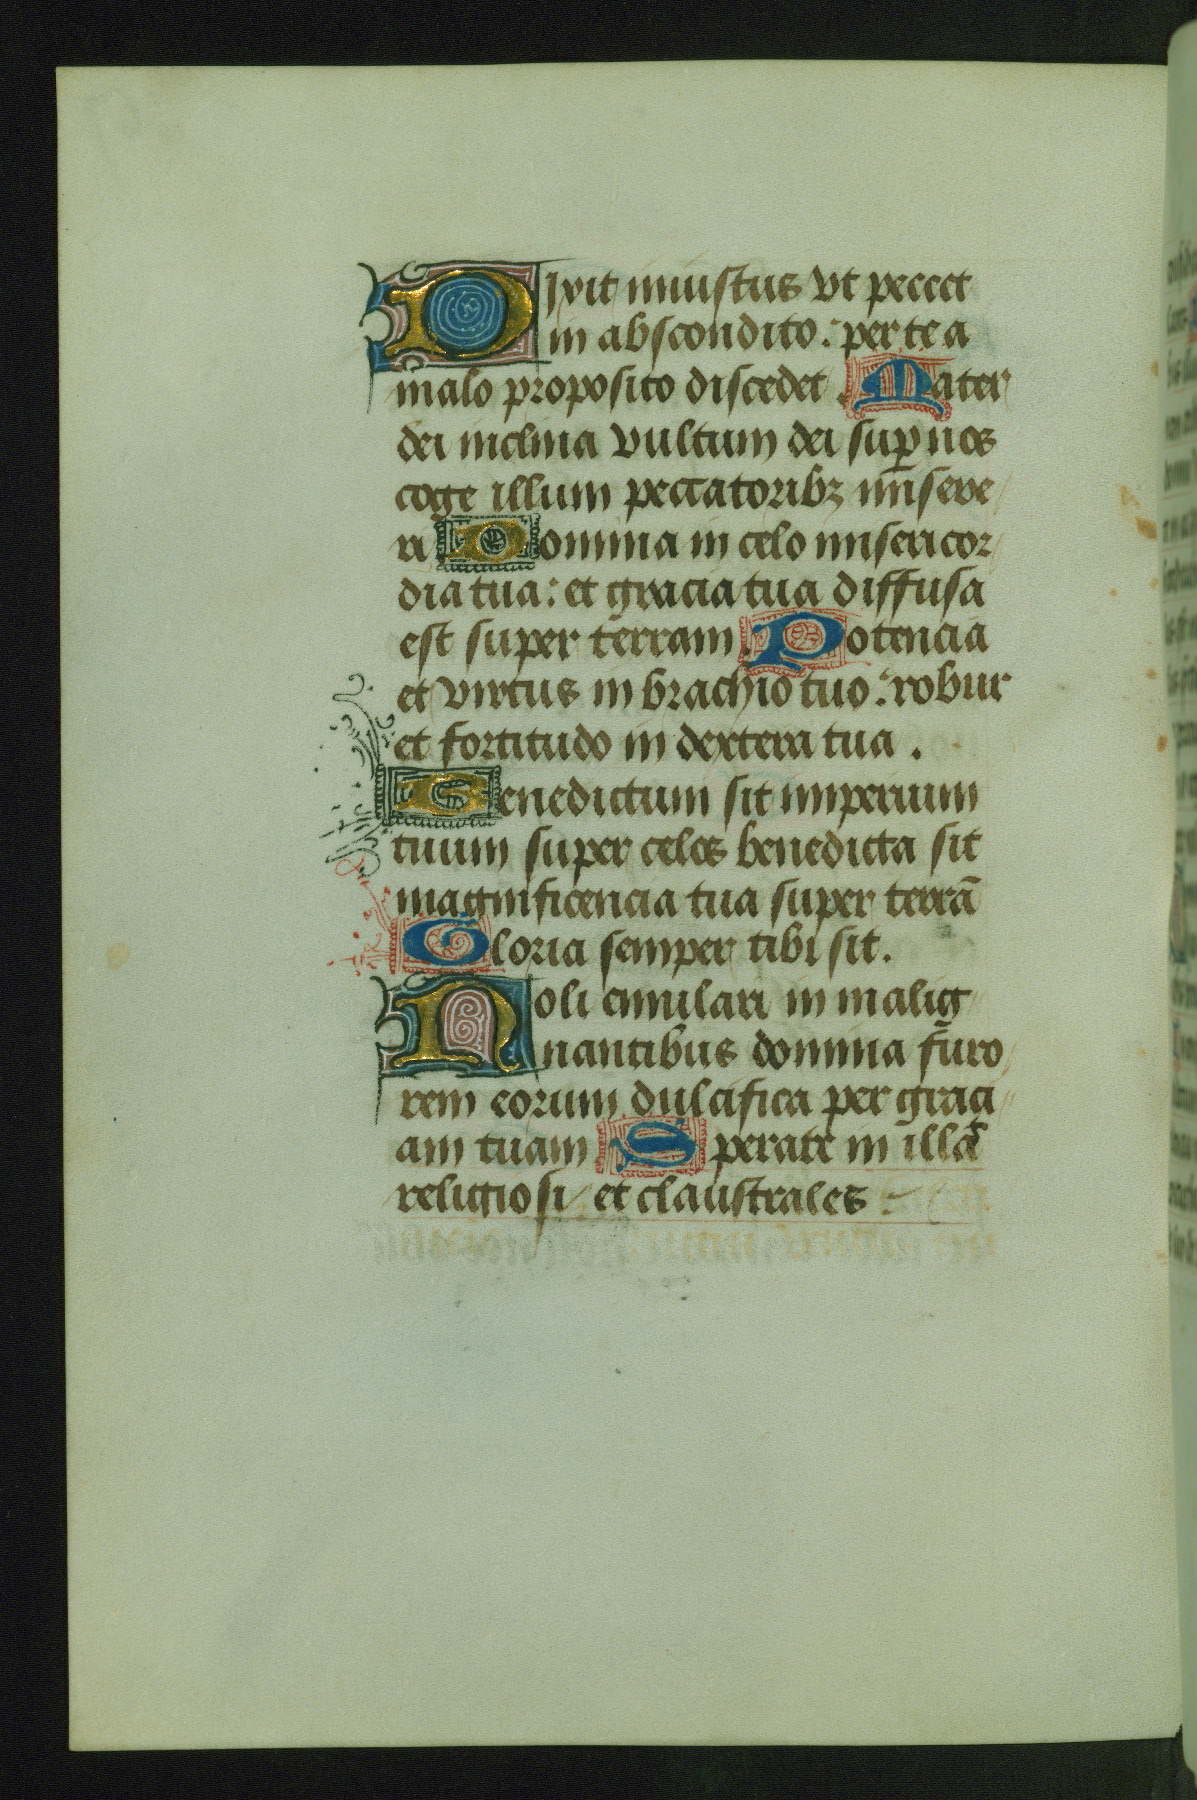 Dixit iniustus vt peccet
in abscondito: per te a
malo proposito discedet. Mater
dei inclina vultum dei sup̱ nos
coge illum peccatoribꝫ misere
ri Domina in celo misericor
dia tua: et gracia tua diffusa
est super terram. Potencia
et virtus in brachio tuo: robur
et fortitudo in dextera tua.
Benedictum sit imperium
tuum super celos benedicta sit
magnificencia tua super terrā
Gloria semper tibi sit.
Noli emulari in malig
nantibus domina furo
rem eorum dulcifica per graci
am tuam Sperate in illā
religiosi et claustrales